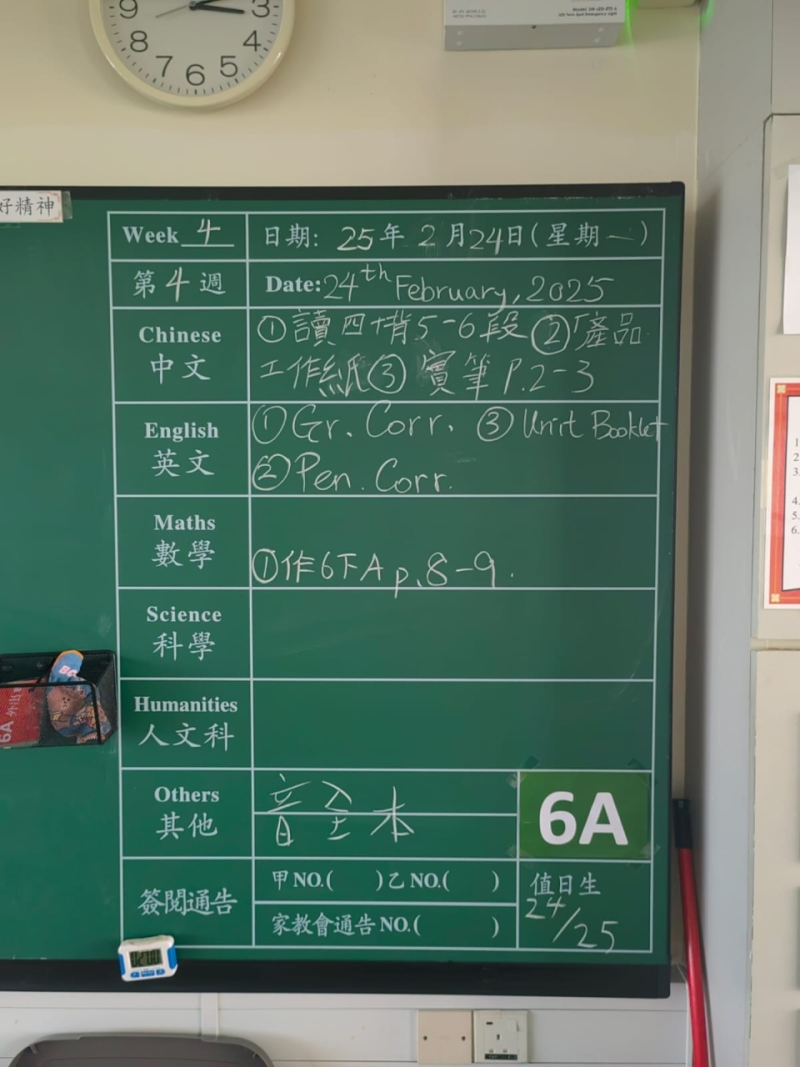 9
3
8
4
7
6
5
好精神
Week 4
日期: 25年2月24日(星期一)
第4週
Date: 24th February, 2025
Chinese
中文
①讀四十背5-6段②「產品
工作紙③實筆P.2-3
English
英文
①Gr. Corr. ③Unit Booklet
②Pen. Corr.
Maths
數學
①作6下A p.8-9.
Science
科學
Humanities
人文科
Others
其他
音全本
6A
簽閱通告
甲NO.( )乙NO.( )
家教會通告NO.( )
值日生
24/25
6A
1
2
3
4.
5.
6.